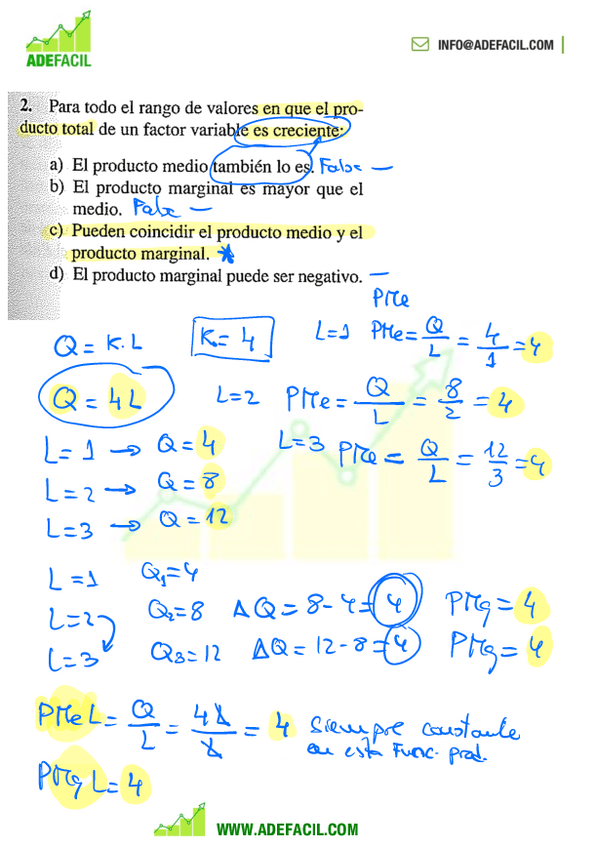 ADEFACIL
INFO@ADEFACIL.COM
2. Para todo el rango de valores en que el pro-
ducto total de un factor variable es creciente:
a) El producto medio también lo es. False —
b) El producto marginal es mayor que el
medio. False —
c) Pueden coincidir el producto medio y el
producto marginal. *
d) El producto marginal puede ser negativo. —
PMe
Q = K.L K = 4 L=1 PMe = Q/L = 4/1 = 4
Q = 4L L=2 PMe = Q/L = 8/2 = 4
L = 1 → Q = 4 L=3 PMe = Q/L = 12/3 = 4
L = 2 → Q = 8
L = 3 → Q = 12
L = 1 Q1=4
L = 2 Q2=8 ΔQ = 8-4 = 4 PMg = 4
L = 3 Q3=12 ΔQ = 12-8 = 4 PMg = 4
PMe L = Q/L = 4L/L = 4 Siempre constante
en esta Func. prod.
PMg L = 4
WWW.ADEFACIL.COM